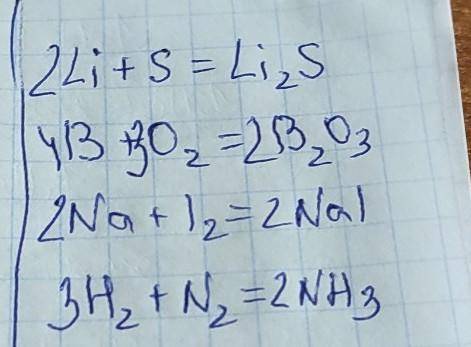 2Li + S = Li₂S
4B + 3O₂ = 2B₂O₃
2Na + I₂ = 2NaI
3H₂ + N₂ = 2NH₃